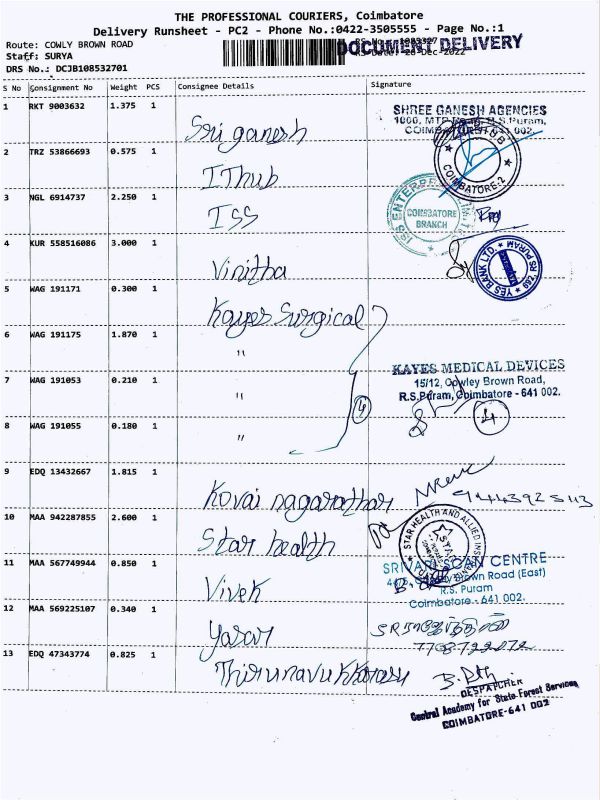 THE PROFESSIONAL COURIERS, Coimbatore
Delivery Runsheet - PC2 - Phone No.:0422-3505555 - Page No.:1
Route: COWLY BROWN ROAD
DOCUMENT DELIVERY
Staff: SURYA
RS Date: 28-Dec-2022
DRS No.: DCJB108532701
S No Consignment No Weight PCS Consignee Details Signature
1 RKT 9003632 1.375 1 Sri ganesh
SHREE GANESH AGENCIES
COIMBATORE-2
2 TRZ 53866693 0.575 1 IThub
3 NGL 6914737 2.250 1 ISS
COIMBATORE
BRANCH
4 KUR 558516086 3.000 1 Vinitha
YES BANK LTD. RS PURAM
5 WAG 191171 0.300 1 Kayes Surgical
6 WAG 191175 1.870 1 "
KAYES MEDICAL DEVICES
7 WAG 191053 0.210 1 "
15/12, Cowley Brown Road,
R.S.Puram, Coimbatore - 641 002.
4
4
8 WAG 191055 0.180 1 "
9 EDQ 13432667 1.815 1 Kovai nagarathar
10 MAA 942287855 2.600 1 Star health
STAR HEALTH AND ALLIED INS
11 MAA 567749944 0.850 1 Vivek
SRIVARI SCAN CENTRE
Brown Road (East)
R.S. Puram
Coimbatore - 641 002.
12 MAA 569225107 0.340 1 Yasar
13 EDQ 47343774 0.825 1 Thirunavukkarasu
DESPATCHER
Central Academy for State Forest Services
COIMBATORE-641 002